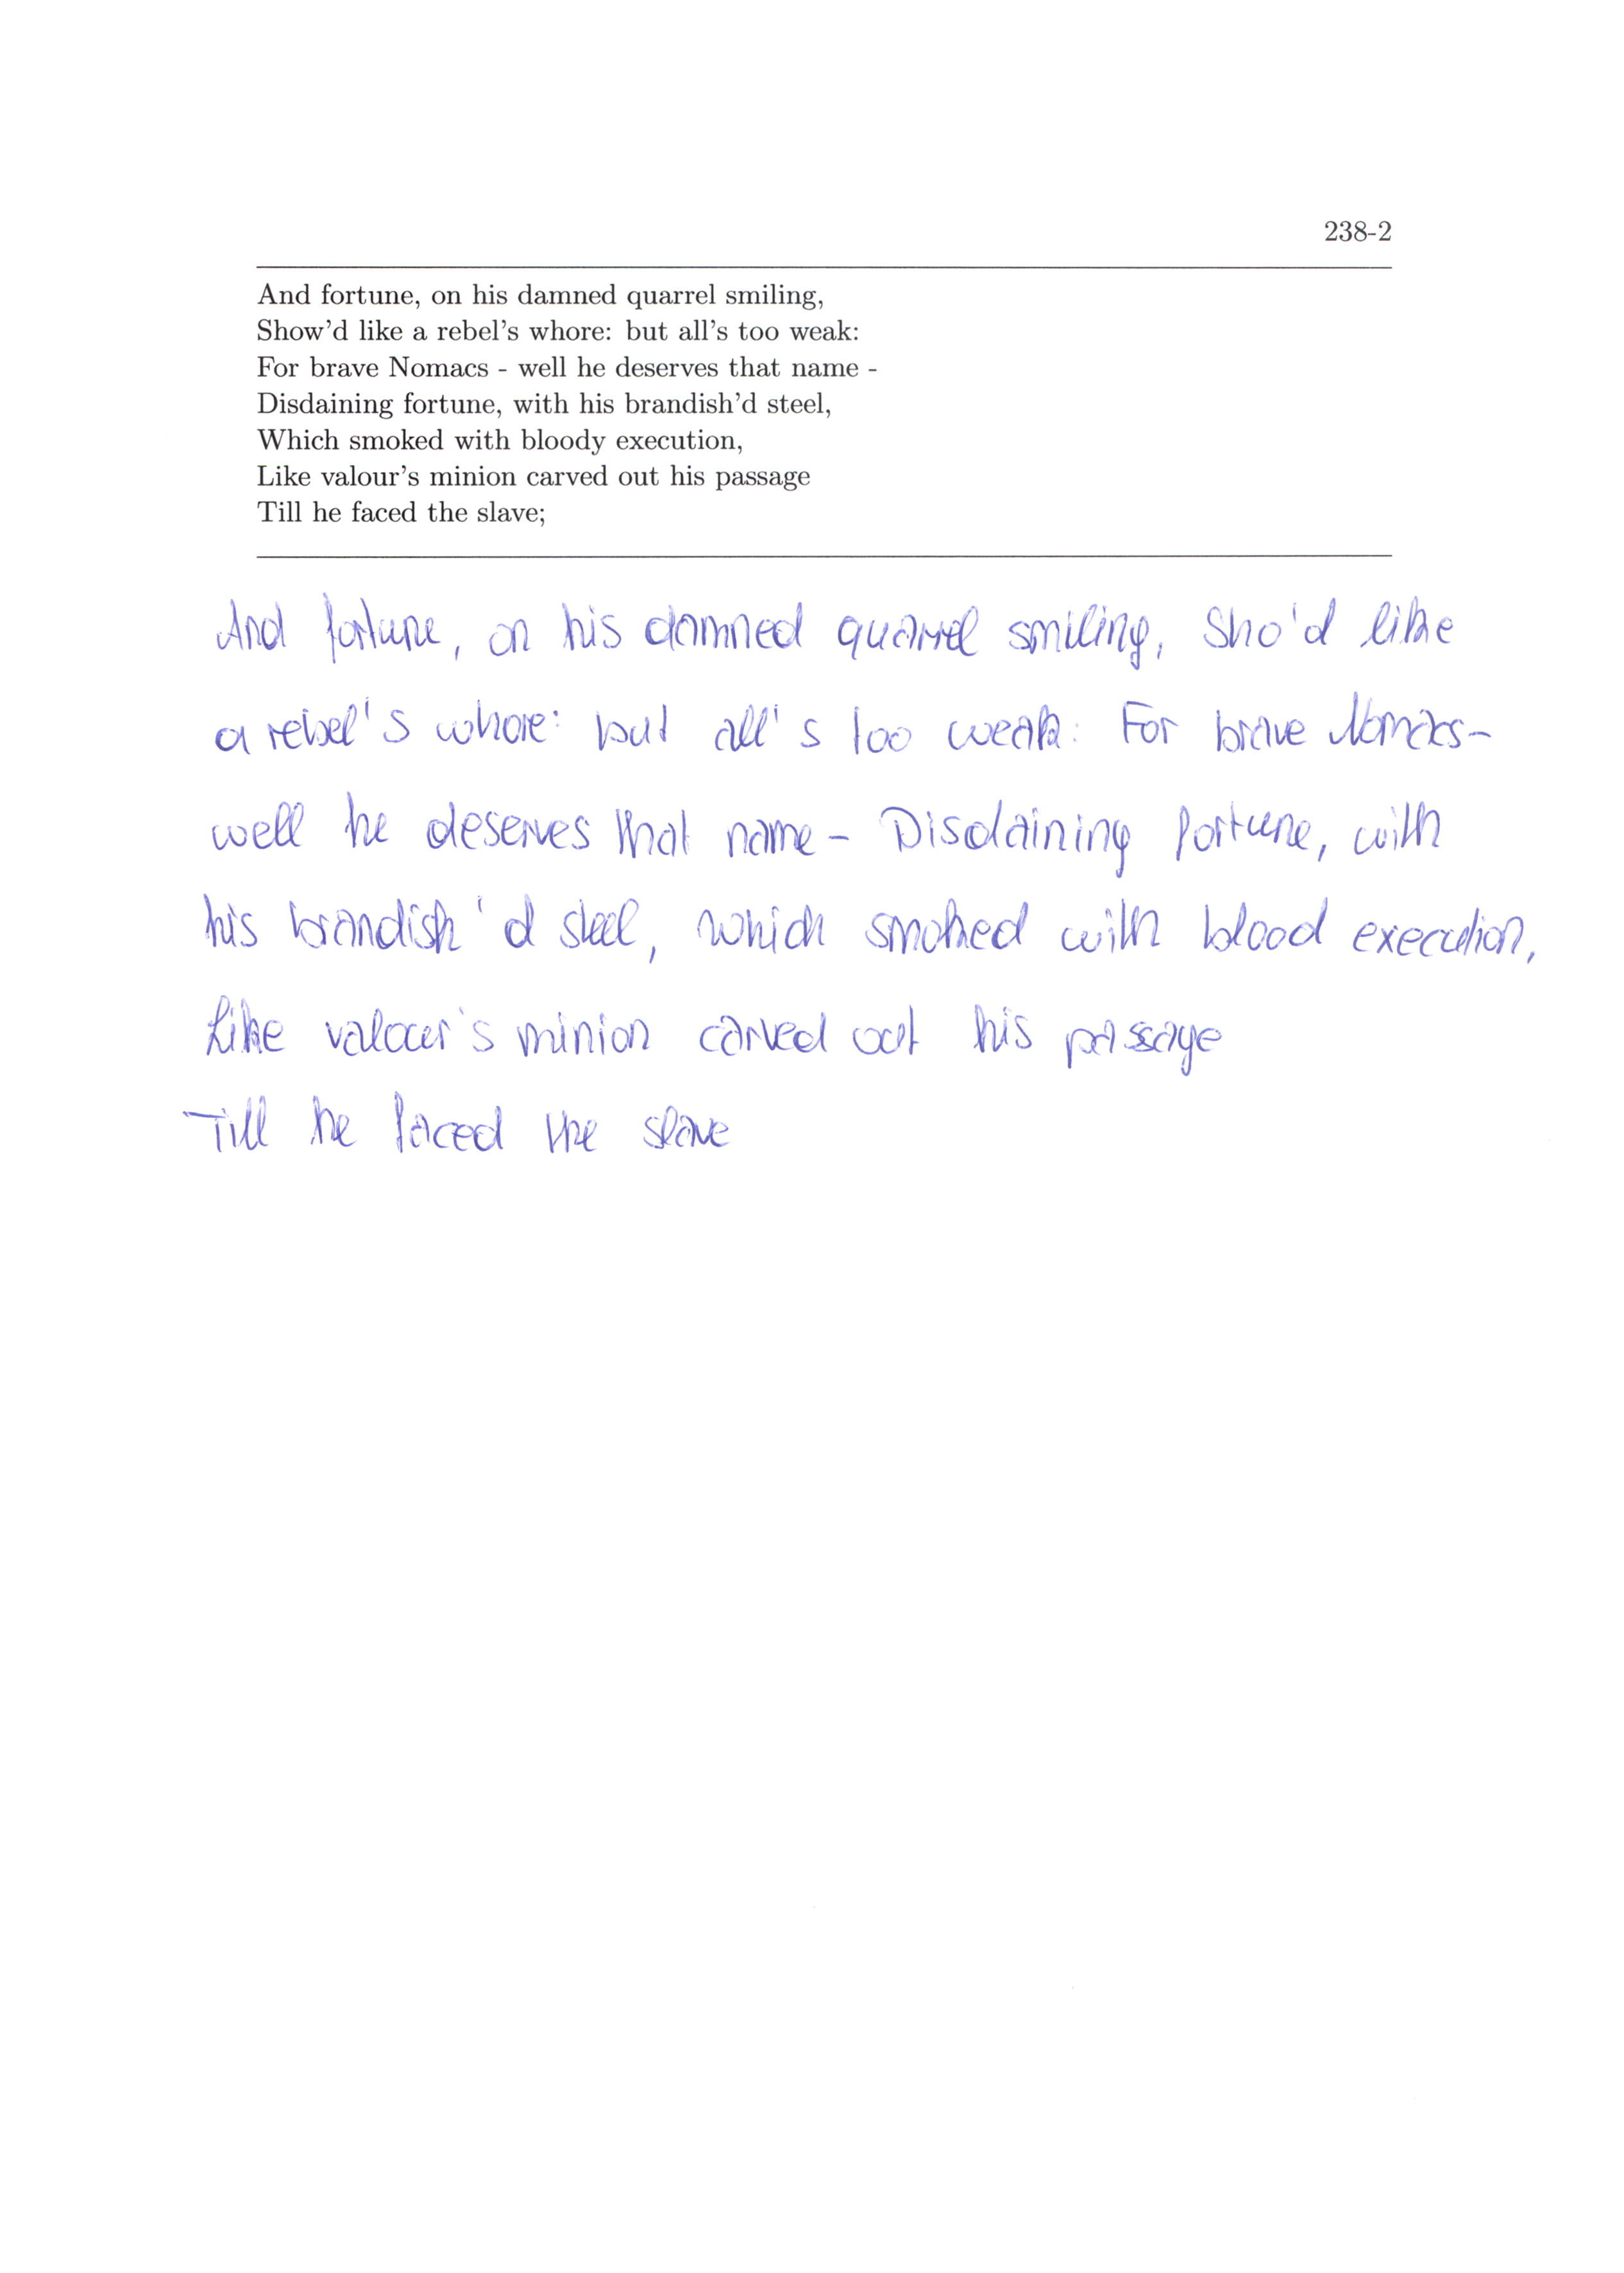 238-2
And fortune, on his damned quarrel smiling,
Show'd like a rebel's whore: but all's too weak:
For brave Nomacs - well he deserves that name -
Disdaining fortune, with his brandish'd steel,
Which smoked with bloody execution,
Like valour's minion carved out his passage
Till he faced the slave;
And fortune, on his damned quarrel smiling, Sho'd like
a rebel's whore: but all's too weak: For brave Nomacs-
well he deserves that name - Disdaining fortune, with
his brandish'd steel, which smoked with blood execution,
Like valour's minion carved out his passage
Till he faced the slave